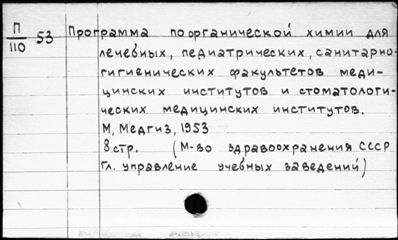 П/110 53 Программа по органической химии для
лечебных, педиатрических, санитарно-
гигиенических факультетов меди-
цинских институтов и стоматологи-
ческих медицинских институтов.
М, Медгиз, 1953
8 стр. (М-во здравоохранения СССР
Гл. управление учебных заведений)